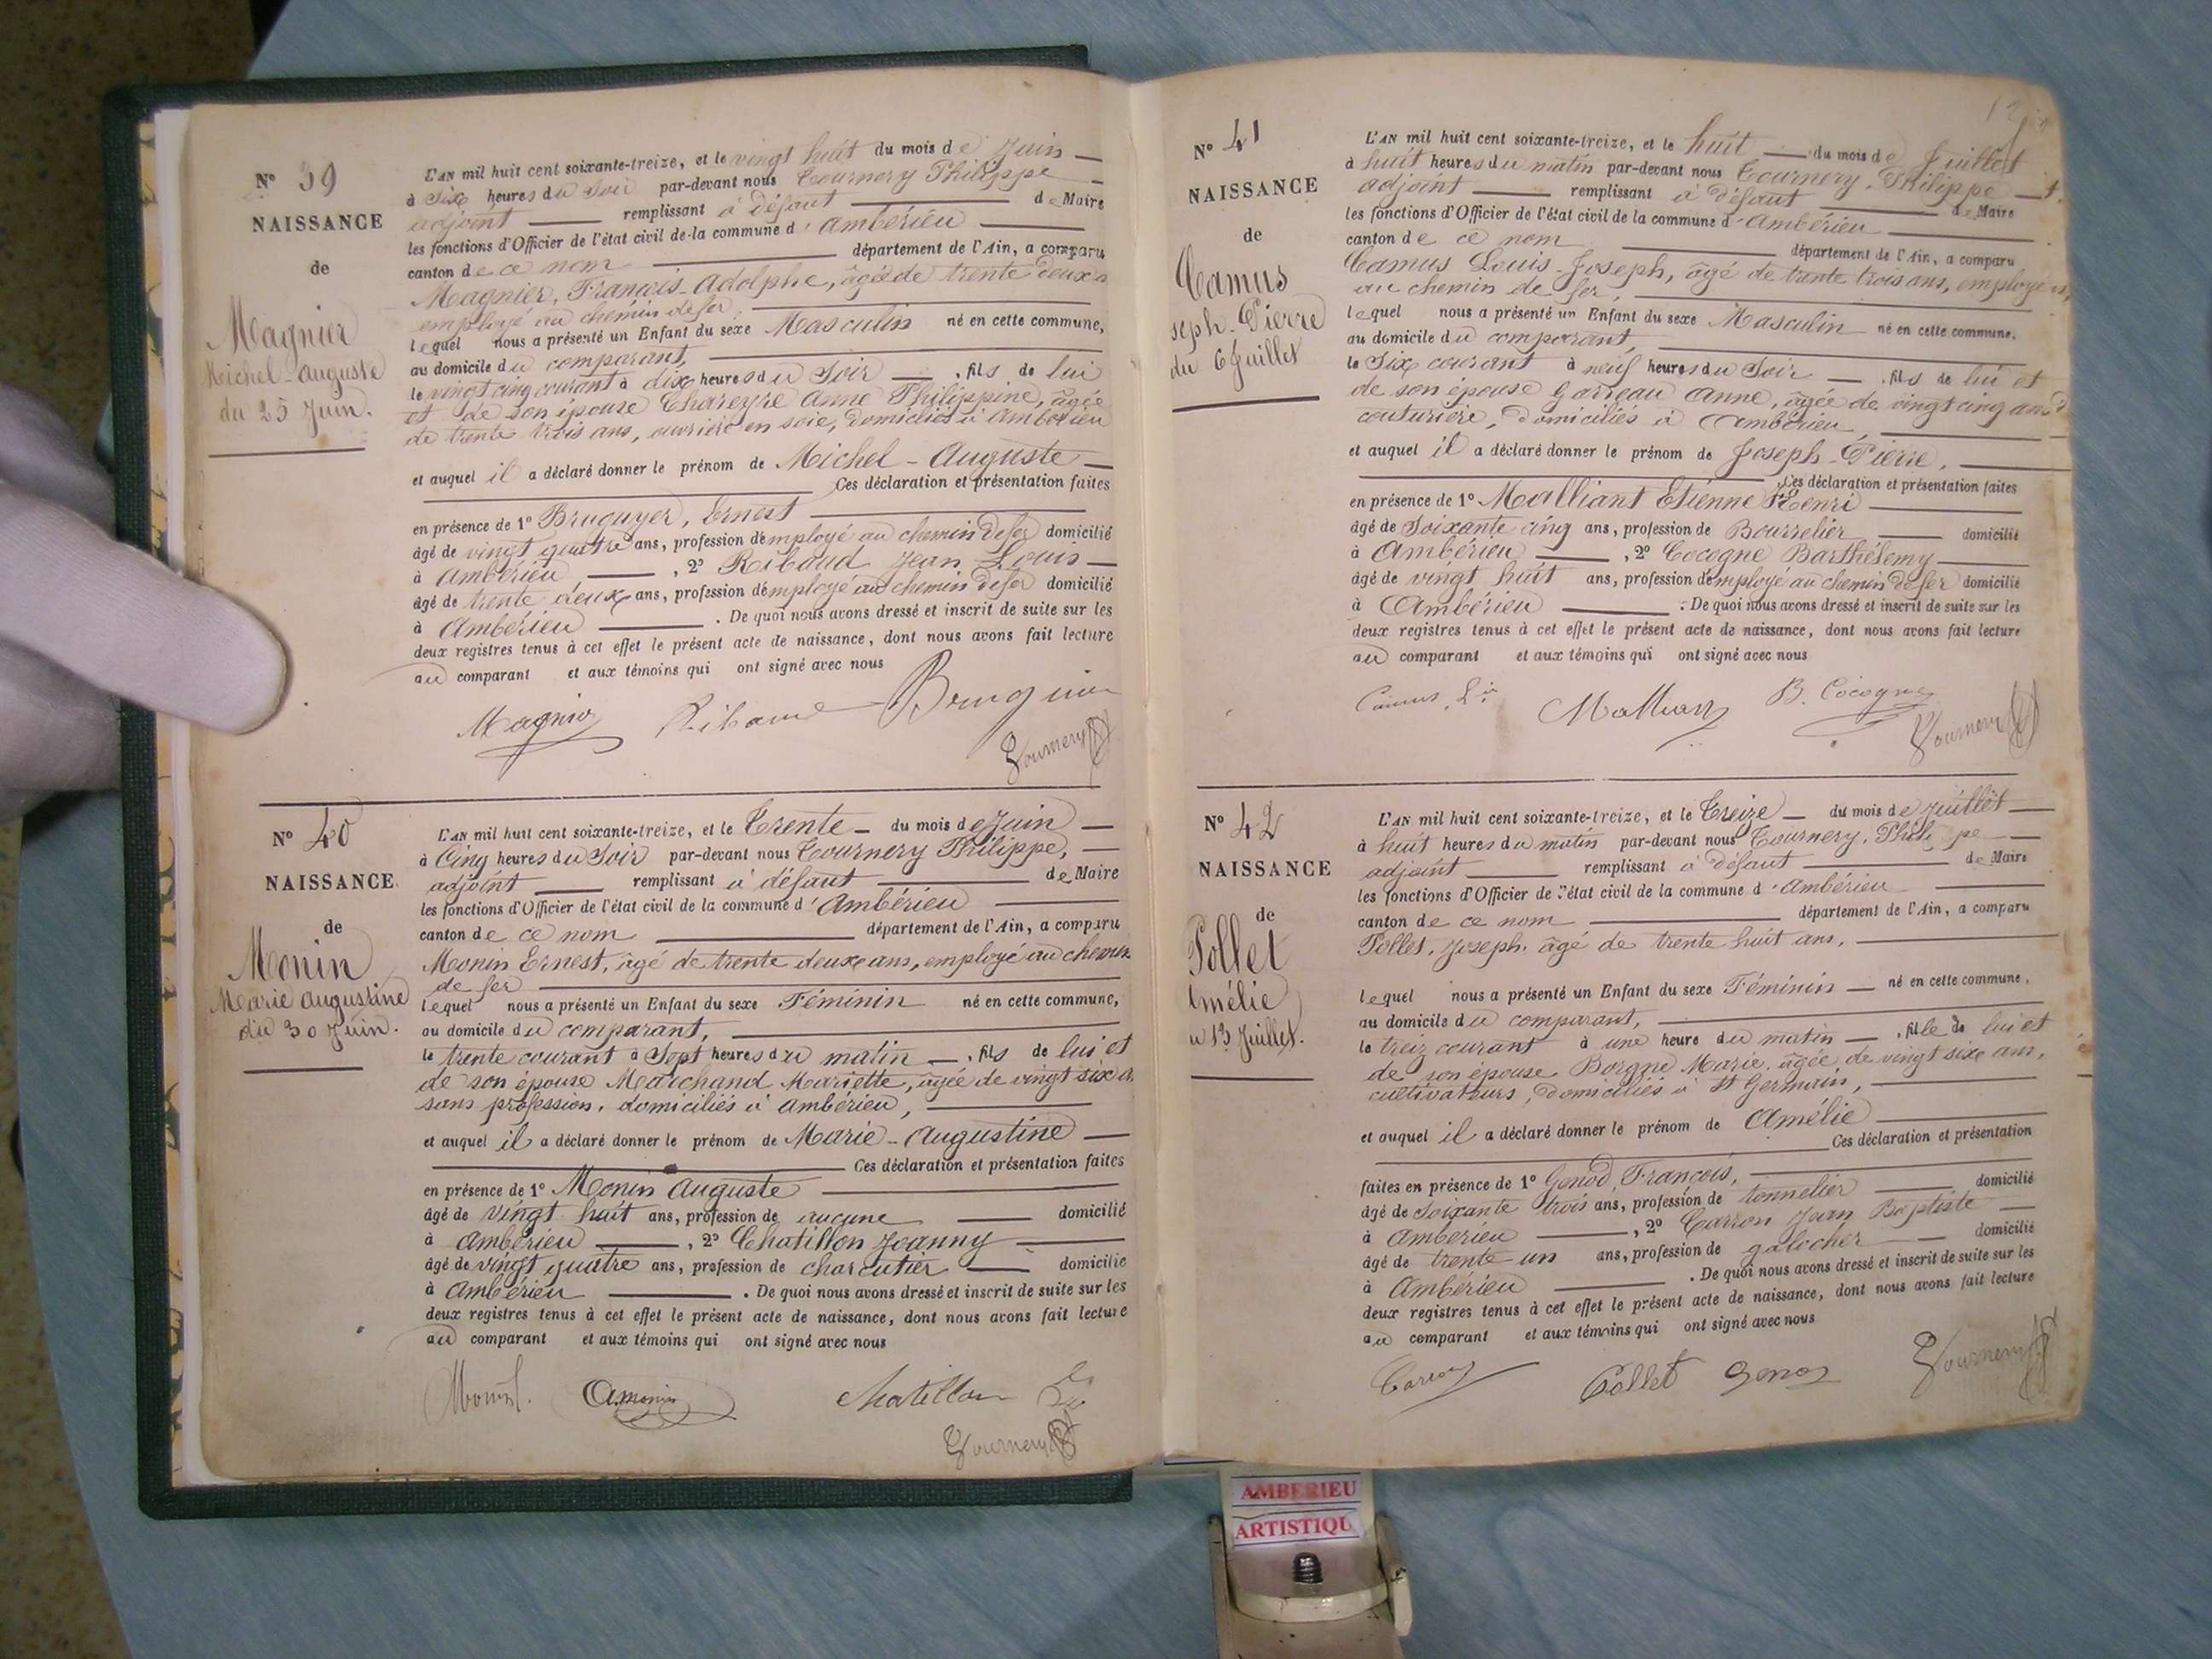 Nº 39
NAISSANCE
de
Magnier
Michel-Auguste
du 25 Juin.
L'AN mil huit cent soixante-treize, et le vingt huit du mois de Juin
à Six heures du Soir par-devant nous Tournery Philippe
adjoint remplissant à défaut de Maire
les fonctions d'Officier de l'état civil de la commune d'Ambérieu
canton de ce nom département de l'Ain, a comparu
Magnier, François Adolphe, âgé de trente deux
employé au chemin de fer,
lequel nous a présenté un Enfant du sexe Masculin né en cette commune,
au domicile du comparant,
le vingt cinq courant à dix heures du Soir , fils de lui
et de son épouse Chareyre Anne Philippine, âgée
de trente trois ans, ouvrière en soie, domiciliés à Ambérieu
et auquel il a déclaré donner le prénom de Michel-Auguste
Ces déclaration et présentation faites
en présence de 1º Bruguyer, Ernest
âgé de vingt quatre ans, profession d'employé au chemin de fer domicilié
à Ambérieu , 2º Ribaud Jean Louis
âgé de trente deux ans, profession d'employé au chemin de fer domicilié
à Ambérieu . De quoi nous avons dressé et inscrit de suite sur les
deux registres tenus à cet effet le présent acte de naissance, dont nous avons fait lecture
au comparant et aux témoins qui ont signé avec nous
Magnier Ribaud
Tournery
Nº 40
NAISSANCE
de
Monin
Marie Augustine
du 30 Juin.
L'AN mil huit cent soixante-treize, et le Trente du mois de Juin
à Cinq heures du Soir par-devant nous Tournery Philippe,
adjoint remplissant à défaut de Maire
les fonctions d'Officier de l'état civil de la commune d'Ambérieu
canton de ce nom département de l'Ain, a comparu
Monin Ernest, âgé de trente deux ans, employé au chemin
de fer
lequel nous a présenté un Enfant du sexe Féminin né en cette commune,
au domicile du comparant,
le trente courant à Sept heures du matin , fils de lui et
de son épouse Marchand Mariette, âgée de vingt six
sans profession, domiciliés à Ambérieu,
et auquel il a déclaré donner le prénom de Marie-Augustine
Ces déclaration et présentation faites
en présence de 1º Monin Auguste
âgé de vingt huit ans, profession de aucune domicilié
à Ambérieu , 2º Chatillon Joanny
âgé de vingt quatre ans, profession de charcutier domicilié
à Ambérieu . De quoi nous avons dressé et inscrit de suite sur les
deux registres tenus à cet effet le présent acte de naissance, dont nous avons fait lecture
au comparant et aux témoins qui ont signé avec nous
A. monin Chatillon
Tournery
Nº 41
NAISSANCE
de
Camus
seph-Pierre
du 6 Juillet
L'AN mil huit cent soixante-treize, et le huit du mois de Juillet
à huit heures du matin par-devant nous Tournery, Philippe
adjoint remplissant à défaut de Maire
les fonctions d'Officier de l'état civil de la commune d'Ambérieu
canton de ce nom département de l'Ain, a comparu
Camus Louis-Joseph, âgé de trente trois ans, employé
au chemin de fer,
lequel nous a présenté un Enfant du sexe Masculin né en cette commune.
au domicile du comparant,
le Six courant à neuf heures du Soir , fils de lui et
de son épouse Garreau Anne, âgée de vingt cinq ans
couturière, domiciliés à Ambérieu,
et auquel il a déclaré donner le prénom de Joseph-Pierre,
Ces déclaration et présentation faites
en présence de 1º Malliant Etienne Henri
âgé de Soixante cinq ans, profession de Bourrelier domicilié
à Ambérieu , 2º Cocogne Barthélemy
âgé de vingt huit ans, profession d'employé au chemin de fer domicilié
à Ambérieu . De quoi nous avons dressé et inscrit de suite sur les
deux registres tenus à cet effet le présent acte de naissance, dont nous avons fait lecture
au comparant et aux témoins qui ont signé avec nous
Camus B. Cocogne
Tournery
Nº 42
NAISSANCE
de
Pollet
Amélie
u 13 Juillet.
L'AN mil huit cent soixante-treize, et le Treize du mois de Juillet
à huit heures du matin par-devant nous Tournery, Philippe
adjoint remplissant à défaut de Maire
les fonctions d'Officier de l'état civil de la commune d'Ambérieu
canton de ce nom département de l'Ain, a comparu
Pollet, Joseph, âgé de trente huit ans,
lequel nous a présenté un Enfant du sexe Féminin né en cette commune,
au domicile du comparant,
le treiz courant à une heure du matin , fille de lui et
de son épouse Borgne Marie, âgée de vingt six ans,
cultivateurs, domiciliés à St Germain,
et auquel il a déclaré donner le prénom de Amélie
Ces déclaration et présentation
faites en présence de 1º Genod, François, domicilié
âgé de soixante trois ans, profession de tonnelier
à Ambérieu , 2º Carron Jean Baptiste
âgé de trente un ans, profession de galocher domicilié
à Ambérieu . De quoi nous avons dressé et inscrit de suite sur les
deux registres tenus à cet effet le présent acte de naissance, dont nous avons fait lecture
au comparant et aux témoins qui ont signé avec nous
Carron Pollet Genod
Tournery
AMBERIEU
ARTISTIQU